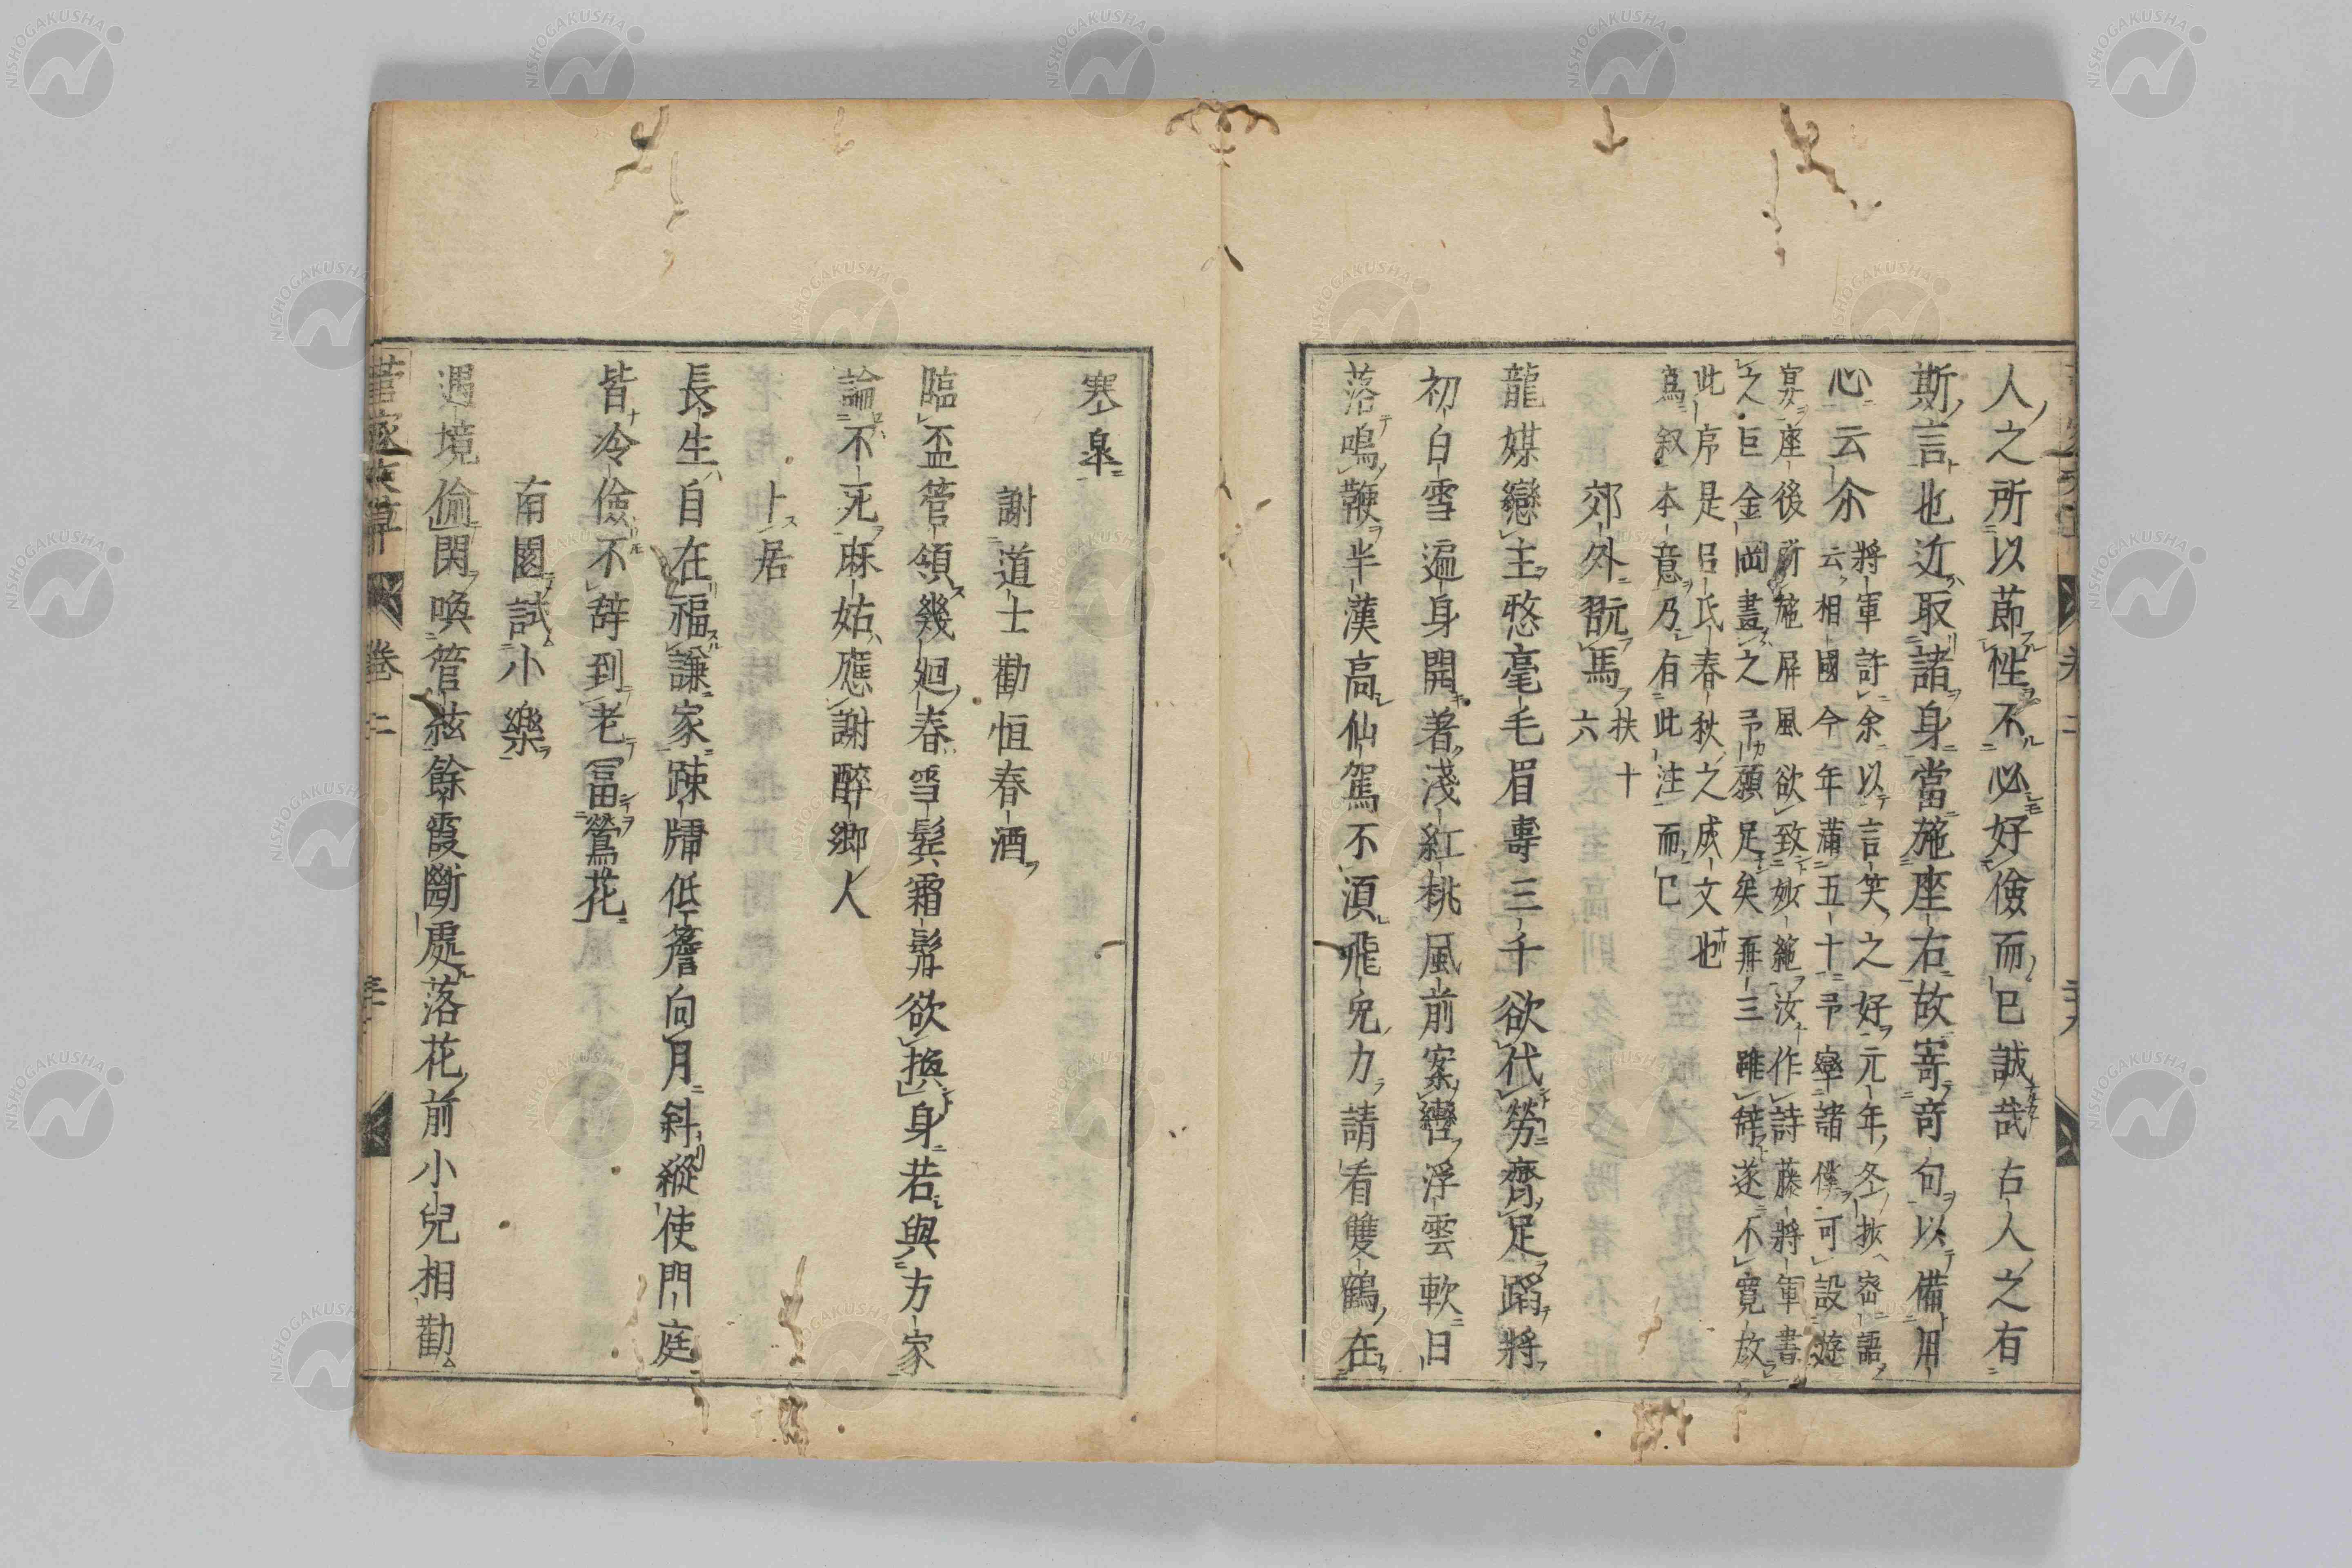 人之所以莭性不必好儉而已誠哉右人之有
斯言也近取諸身當施座右故寄奇句以備用
心云尒
將軍許余以言笑之好元年冬揬密語
云相國今年蒲五十予擧諸僕可設遊
宴座後所施屏風欲致妙絶汝作詩藤將軍書
之巨金岡畫之予願足矣再三雖辞遂不寛放
此序是呂氏春秋之成文也
爲叙本意乃有此注而已
郊外翫馬
扶十
六
龍媒戀主整毫毛眉壽三千欲代勞齊足蹈將
初白雪遍身開著淺紅桃風前案轡浮雲軟日
落鳴鞭半漢高仙駕不湏飛兎力請看雙鶴在
寒皐
謝道士勸恒春酒
臨盃管領幾廻春雪鬂霜髯欲換身若與方家
論不死麻姑應謝醉鄉人
卜居
長生自在福謙家踈牗低簷向月斜縱使門庭
皆冷儉不辞到老冨鶯花
南園試小樂
遇境偷閑喚管絃餘霞斷處落花前小兒相勸
卷二
NISHOGAKUSHA